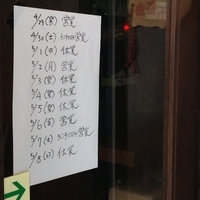 4/29(祭) 営業
4/30(土) ランチのみ営業
5/1(日) 休業
5/2(月) 営業
5/3(祭) 休業
5/4(祭) 休業
5/5(祭) 休業
5/6(金) 営業
5/7(土) ランチのみ営業
5/8(日) 休業